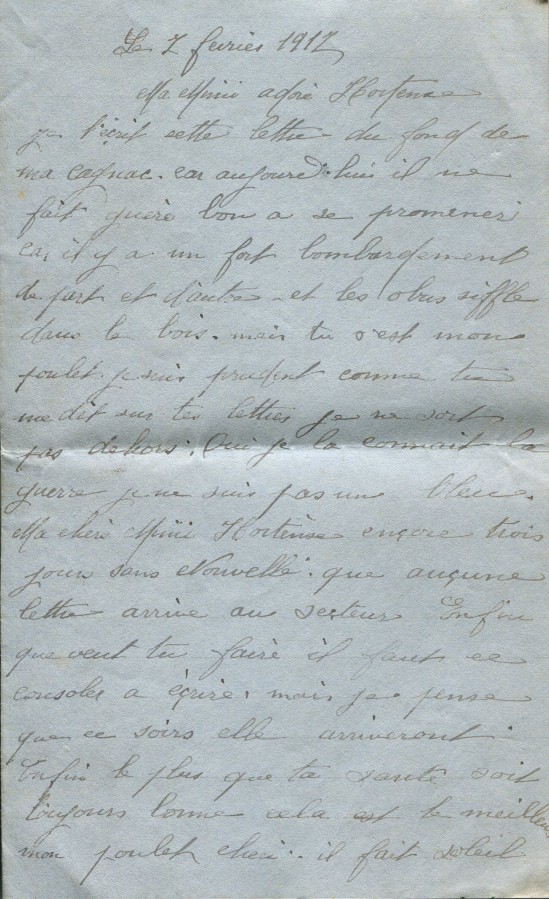 Le 7 fevrier 1917
Ma Mimi adoré Hortense
je t'écrit cette lettre du fond de
ma cagnac. car aujourd'hui il ne
fait guère bon a se promener
car il y a un fort bombardement
de part et d'autre et les obus siffle
dans le bois. mais tu s'est mon
poulet je suis prudent comme tu
me dit sur tes lettres je ne sort
pas dehors. Oui je la connait la
guerre je ne suis pas un bleu.
Ma chère Mimi Hortense encore trois
jours sans Nouvelle. que aucune
lettre arrive au secteur Enfin
que veut tu faire il faut ce
consoler a écrire. mais je pense
que ce soirs elle arriveront.
Enfin le plus que ta santé soit
toujours bonne cela est le meilleu
mon poulet cheri. il fait soleil